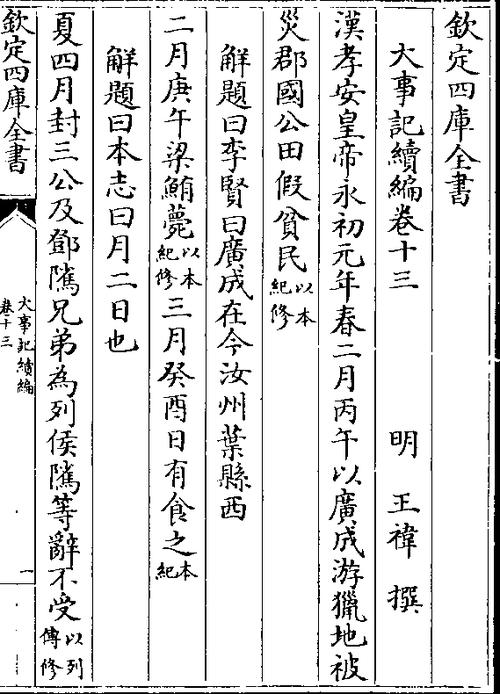 欽定四庫全書
大事記續編卷十三 明 王禕 撰
漢孝安皇帝永初元年春二月丙午以廣成游獵地被
災郡國公田假貧民以本紀修
觧題曰李賢曰廣成在今汝州葉縣西
二月庚午梁鮪薨以本紀修三月癸酉日有食之本紀
觧題曰本志曰月二日也
夏四月封三公及鄧隲兄弟為列侯隲等辭不受以列傳修
欽定四庫全書
大事記續編
卷十三
一